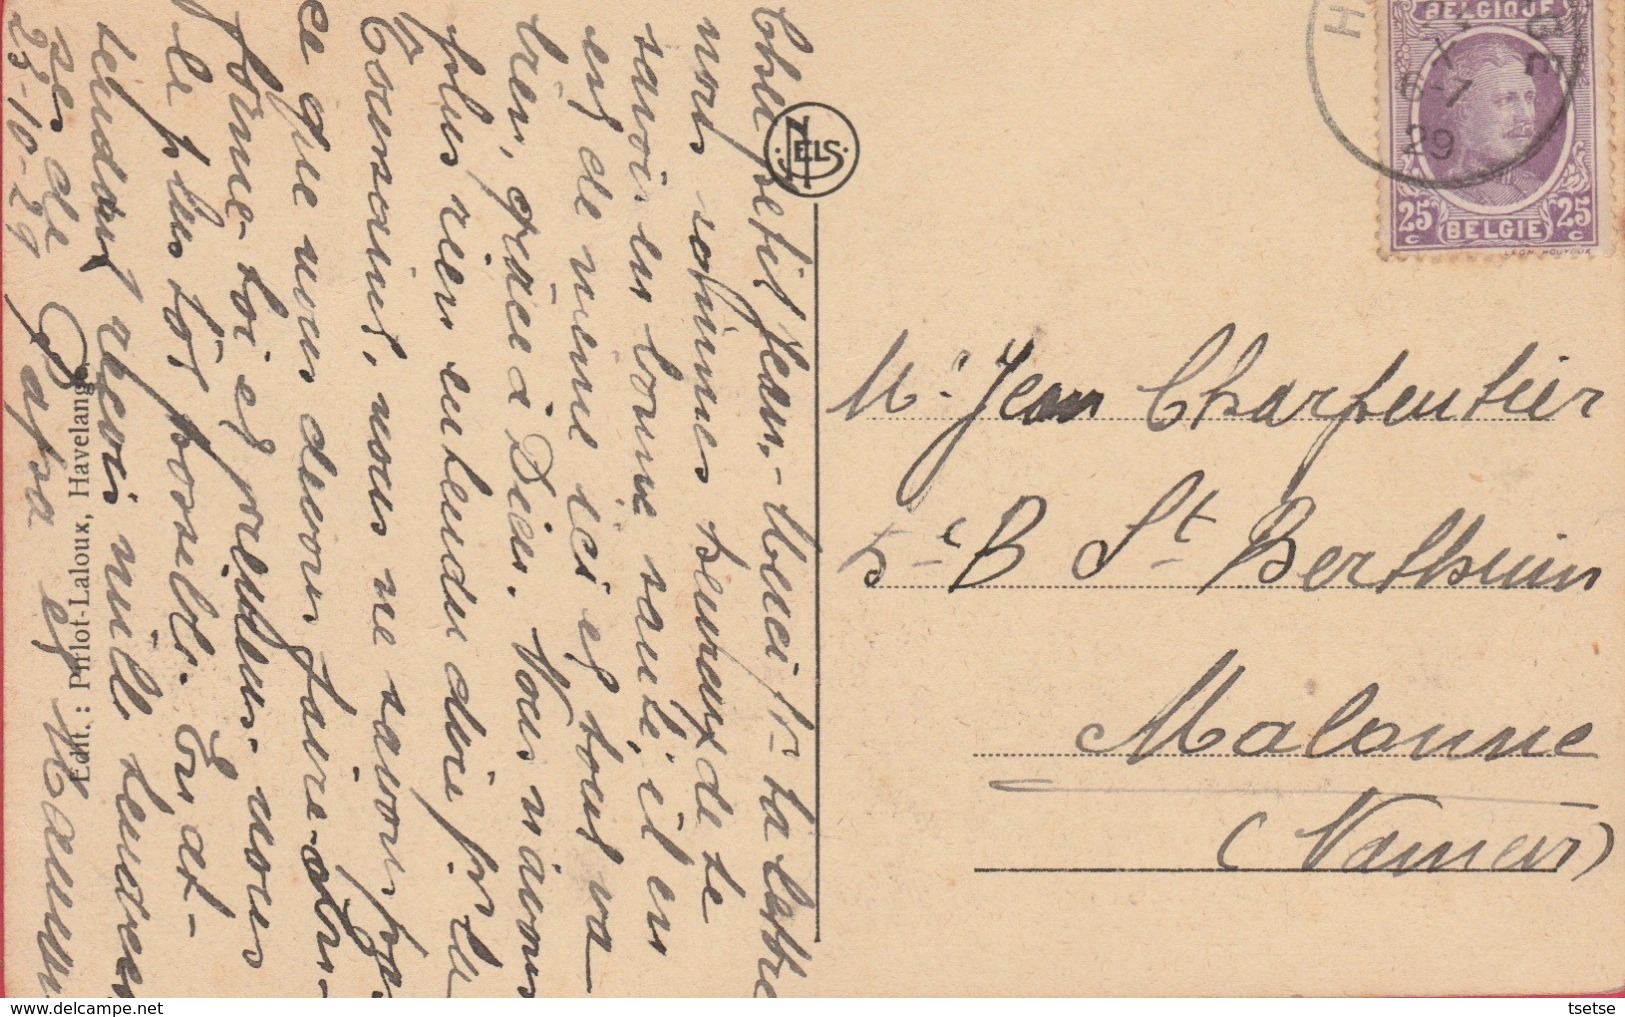 Cher petit Jean, - Merci pr ta lettre
nous sommes heureux de te
savoir en bonne santé, il en
est de même ici et tout va
bien, grâce à Dieu. Nous n'avons
plus rien entendu dire pr la
Toussaint, nous ne savons pas
ce que nous devons faire.
forme-toi et préviens-nous
le plus tôt possible. En at-
tendant reçois mille tendres
ses de Papa et Maman
23-10-29
Edit. : Pirlot-Laloux, Havelange.
NELS
BELGIQUE
H
GE
X
6-7
29
25 c BELGIE 25 c
LEON HOUYOUX
Mr Jean Charpentier
St Berthuin
Malonne
(Namur)
tsetse